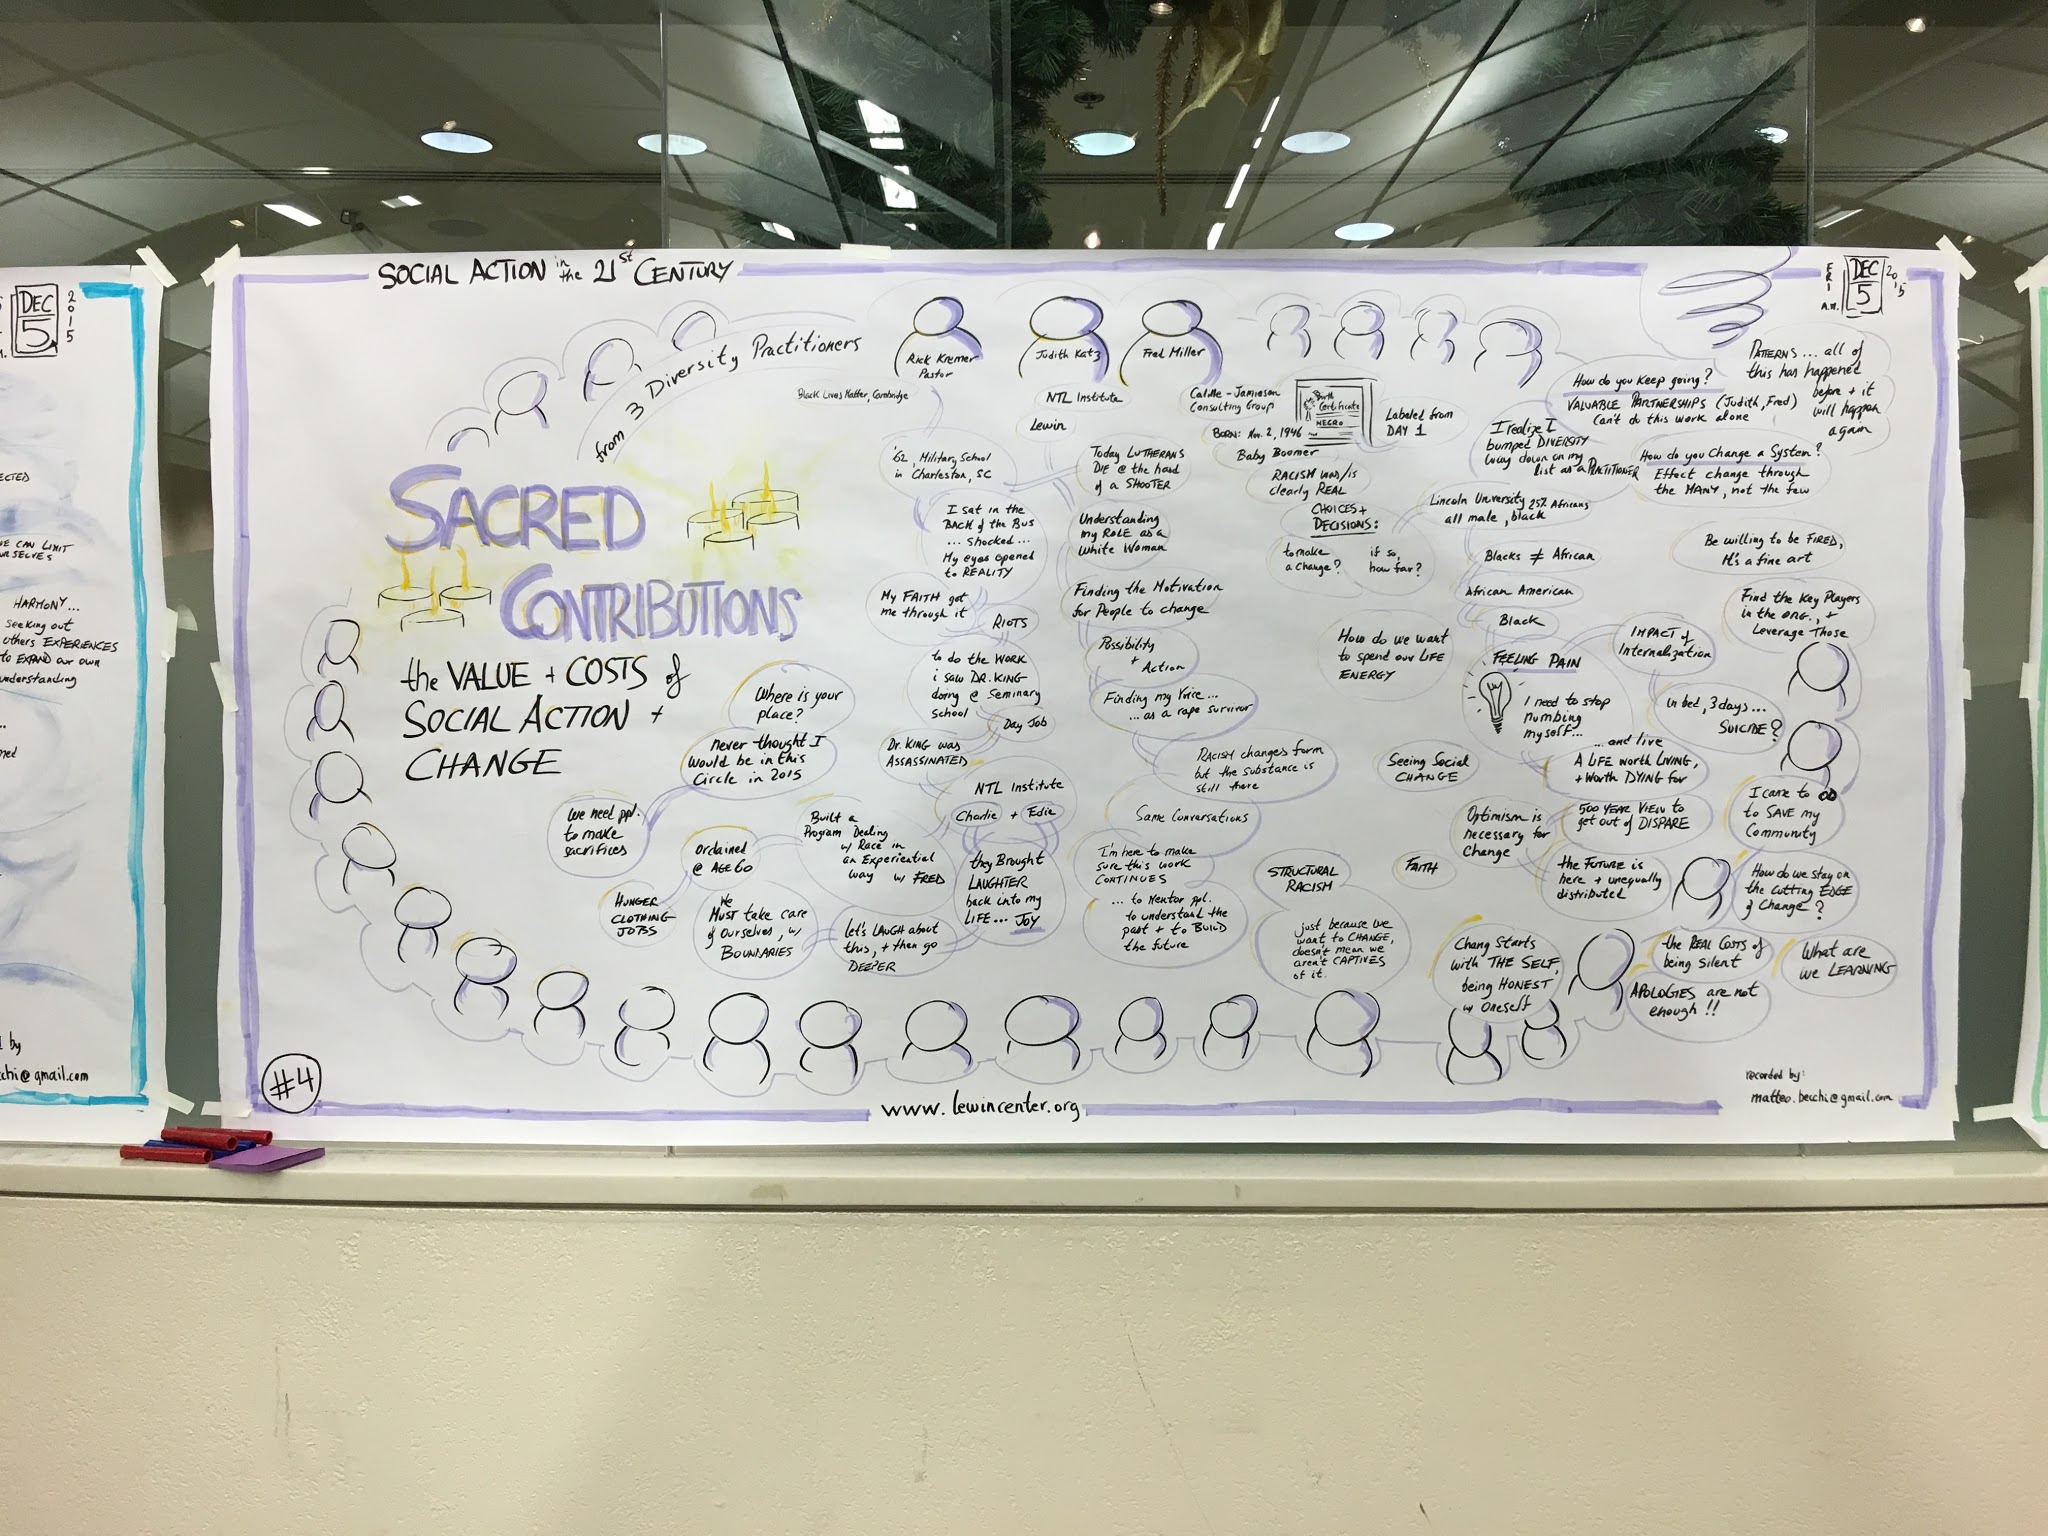 DEC
5
2015
ECTED
WE CAN LIMIT
HARMONY...
seeking out
others EXPERIENCES
to EXPAND our own
understanding
by
cchi@gmail.com
SOCIAL ACTION in the 21st CENTURY
from 3 Diversity Practitioners
SACRED
CONTRIBUTIONS
the VALUE + COSTS of
SOCIAL ACTION +
CHANGE
Rick Kremer
Pastor
Black Lives Matter, Cambridge
'62, Military School
in Charleston, SC
I sat in the
BACK of the BUS
... shocked...
My eyes opened
to REALITY
My FAITH got
me through it
RIOTS
to do the WORK
i saw DR. KING
doing @ Seminary
School
Day Job
Dr. KING was
ASSASSINATED
NTL Institute
Charlie + Edie
they BROUGHT
LAUGHTER
back into my
LIFE... JOY
Built a
Program Dealing
w/ Race in
an Experiential
way w/ FRED
let's LAUGH about
this, + then go
DEEPER
We
MUST take care
of Ourselves, w/
BOUNDARIES
Ordained
@ AGE 60
HUNGER
CLOTHING
JOBS
Where is your
place?
never thought I
would be in this
Circle in 2015
We need ppl.
to make
sacrifices
Judith Katz
NTL Institute
Lewin
Today LUTHERANS
DIE @ the hand
of a SHOOTER
Understanding
my ROLE as a
White Woman
Finding the Motivation
for People to change
Possibility
+ Action
Finding my Voice...
...as a rape survivor
RACISM changes form
but the substance is
still there
Same Conversations
I'm here to make
sure this work
CONTINUES
... to Mentor ppl.
to understand the
past + to BUILD
the future
Fred Miller
Consulting Group
BORN: Nov. 2, 1946
Baby Boomer
Birth
Certificate
NEGRO
Labeled from
DAY 1
RACISM was/is
clearly REAL
CHOICES +
DECISIONS:
to make
a change?
if so,
how far?
Lincoln University 25% Africans
all male, black
Blacks ≠ African
African American
Black
FEELING PAIN
I need to stop
numbing
myself...
... and live
A LIFE worth LIVING,
+ worth DYING for
IMPACT of
Internalization
in bed, 3 days...
SUICIDE?
How do we want
to spend our LIFE
ENERGY
Seeing Social
CHANGE
Optimism is
necessary for
Change
500 YEAR VIEW to
get out of DISPARE
the FUTURE is
here + unequally
distributed
FAITH
STRUCTURAL
RACISM
just because we
want to CHANGE,
doesn't mean we
aren't CAPTIVES
of it.
Chang starts
with THE SELF,
being HONEST
w/ Oneself
How do you keep going?
VALUABLE PARTNERSHIPS (Judith, Fred)
Can't do this work alone
I realize I
bumped DIVERSITY
way down on my
list as a PRACTITIONER
How do you Change a System?
Effect change through
the MANY, not the few
PATTERNS... all of
this has happenet
before + it
will happen
again
Be willing to be FIRED,
It's a fine art
Find the Key Players
in the ORG., +
Leverage Those
I came to
to SAVE my
Community
How do we stay on
the Cutting EDGE
of Change?
the REAL COSTS of
being silent
APOLOGIES are not
enough!!
What are
we LEARNING
A.M.
DEC
5
2015
#4
www.lewincenter.org
recorded by:
matteo.becchi@gmail.com